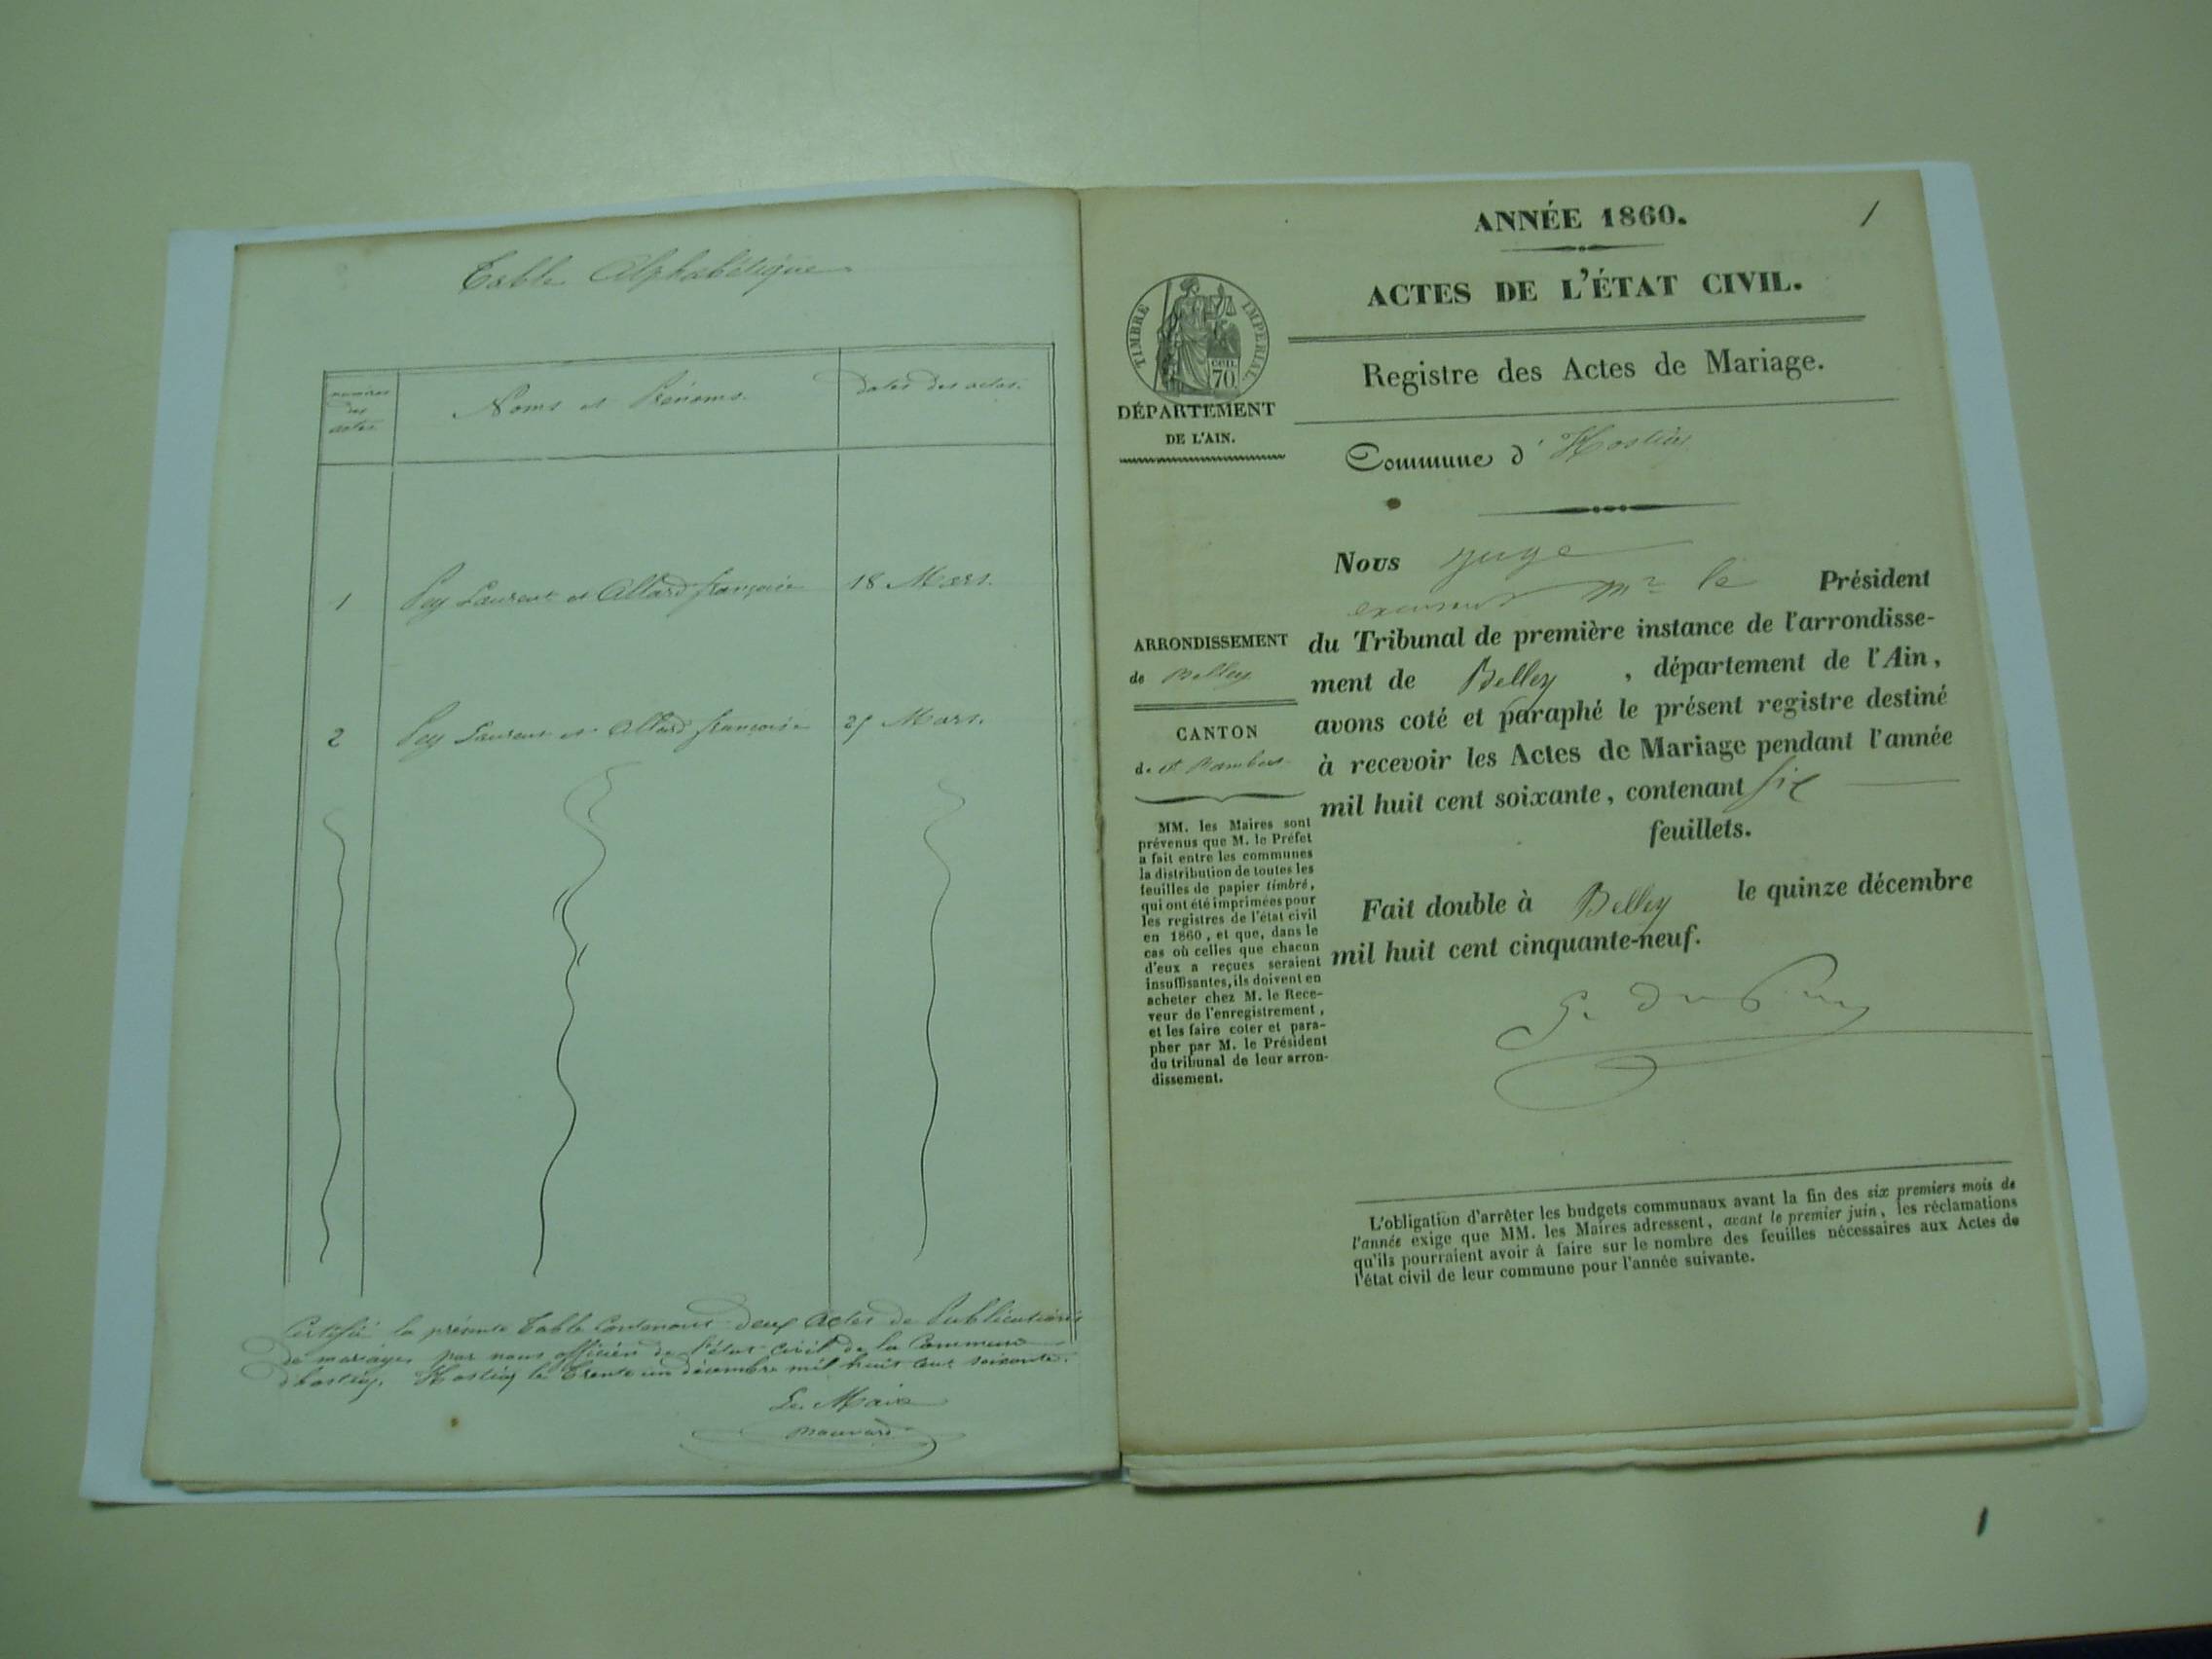 Table Alphabétique
numéros
des
actes
Noms et Prénoms.
Dates des actes.
1
Pey Laurent et Allard françoise
18 Mars.
2
Pey Laurent et Allard françoise
25 Mars.
Certifié la présente Table Contenant deux Actes de Publications
de mariages par nous officier de l'état civil de la Commune
d'hostiaz. Hostiaz le Trente un décembre mil huit cent soixante.
Le Maire
ANNÉE 1860.
1
ACTES DE L'ÉTAT CIVIL.
TIMBRE IMPÉRIAL
CEN.
70
Registre des Actes de Mariage.
DÉPARTEMENT
DE L'AIN.
Commune d' Hostiaz
Nous juge
Mr le Président
du Tribunal de première instance de l'arrondisse-
ment de Belley , département de l'Ain,
avons coté et paraphé le présent registre destiné
à recevoir les Actes de Mariage pendant l'année
mil huit cent soixante, contenant six
feuillets.
Fait double à Belley le quinze décembre
mil huit cent cinquante-neuf.
ARRONDISSEMENT
de Belley
CANTON
de St Rambert
MM. les Maires sont
prévenus que M. le Préfet
a fait entre les communes
la distribution de toutes les
feuilles de papier timbré,
qui ont été imprimées pour
les registres de l'état civil
en 1860, et que, dans le
cas où celles que chacun
d'eux a reçues seraient
insuffisantes, ils doivent en
acheter chez M. le Rece-
veur de l'enregistrement,
et les faire coter et para-
pher par M. le Président
du tribunal de leur arron-
dissement.
L'obligation d'arrêter les budgets communaux avant la fin des six premiers mois de
l'année exige que MM. les Maires adressent, avant le premier juin, les réclamations
qu'ils pourraient avoir à faire sur le nombre des feuilles nécessaires aux Actes de
l'état civil de leur commune pour l'année suivante.